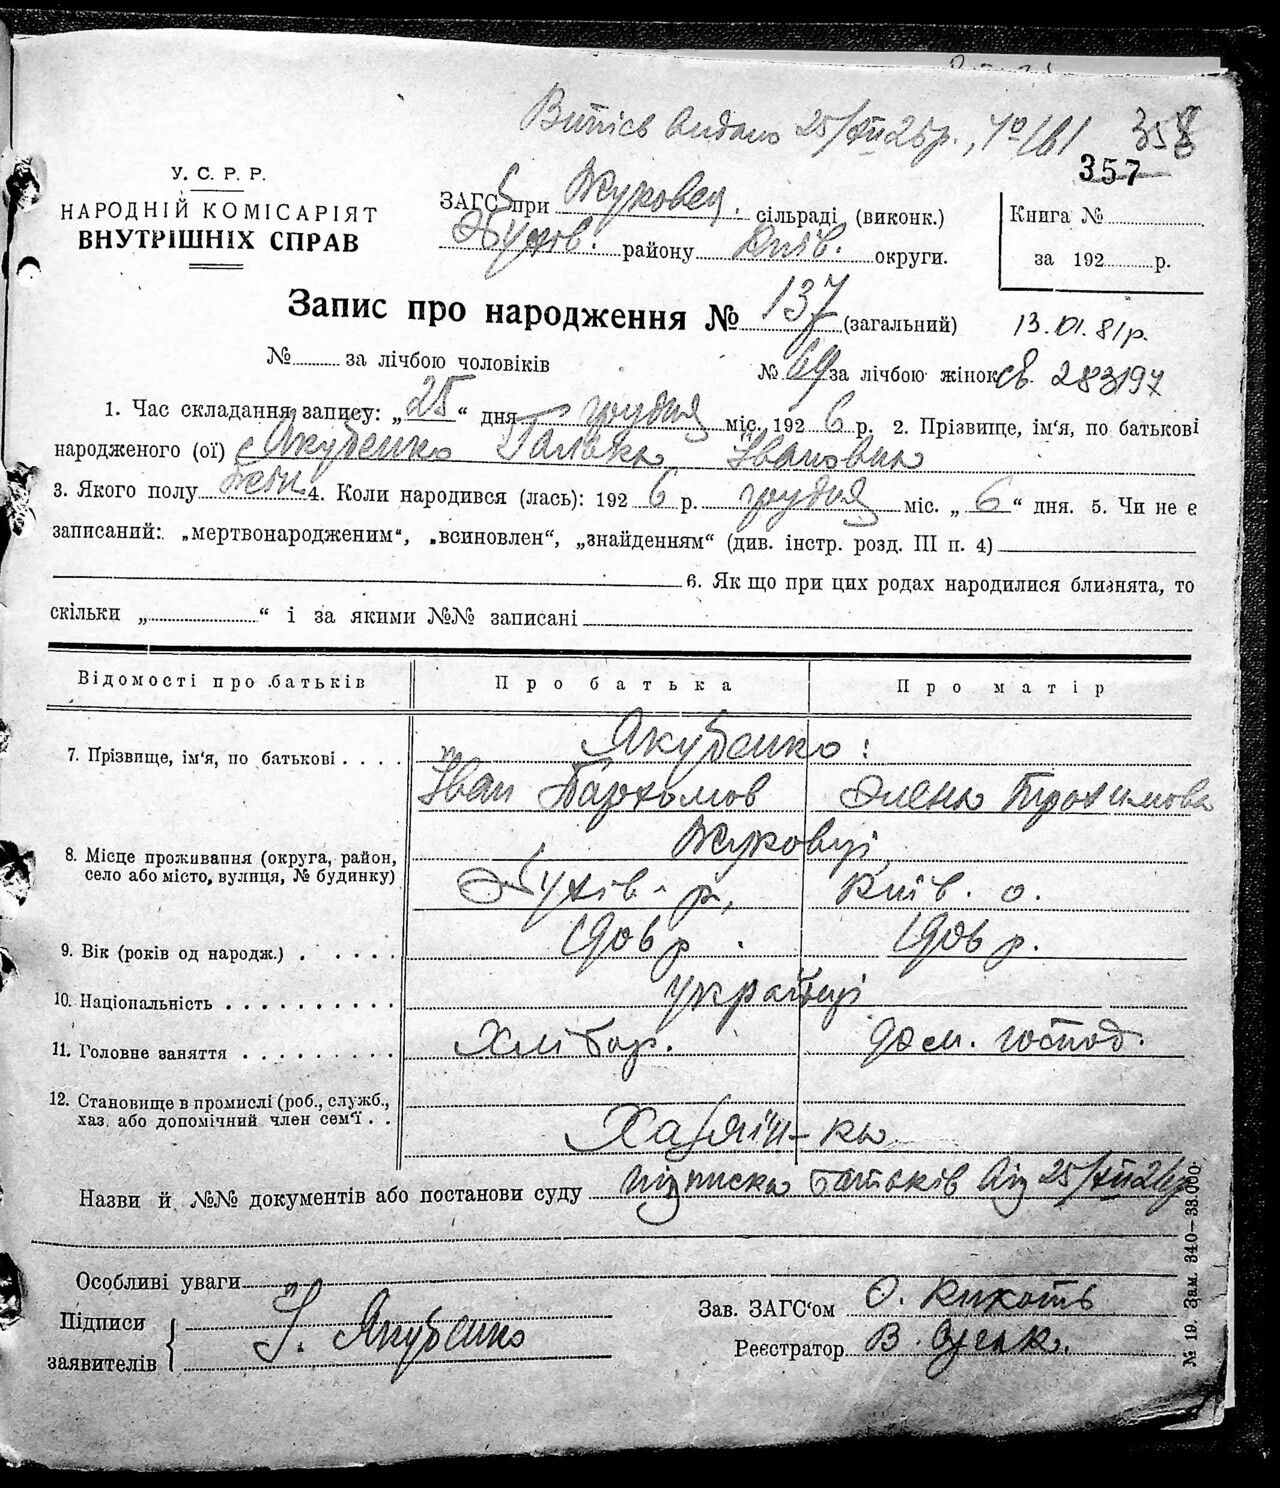 Витпісь видано 25/XII 25р.,
358
357
У. С. Р. Р.
НАРОДНІЙ КОМІСАРІЯТ
ВНУТРІШНІХ СПРАВ
ЗАГС при Жуковец. сільраді (виконк.)
Обухів. району Київ. округи.
Книга №
за 192 р.
Запис про народження № 137 (загальний)
13.XI.81р.
№ за лічбою чоловіків
№ 69 за лічбою жінок
св. 283197
1. Час складання запису: „ 25 “ дня грудня міс. 192 6 р. 2. Прізвище, ім'я, по батькові
народженого (ої) Якубенко Галька Івановна
3. Якого полу жін 4. Коли народився (лась): 192 6 р. грудня міс. „ 6 “ дня. 5. Чи не є
записаний: „мертвонародженим“, „всиновлен“, „знайденням“ (див. інстр. розд. III п. 4)
6. Як що при цих родах народилися близнята, то
скільки „ “ і за якими №№ записані
Відомості про батьків
Про батька
Про матір
7. Прізвище, ім'я, по батькові
Якубенко:
Іван Пархомов
Олена Трохимова
8. Місце проживання (округа, район,
село або місто, вулиця, № будинку)
Жуковці,
Обухів - р,
Київ. о.
9. Вік (років од народж.)
1906 р.
1906 р.
10. Національність
українці
11. Головне заняття
Хлібор.
дом. господ.
12. Становище в промислі (роб., служб.,
хаз. або допомічний член сем'ї
Хазяїн-ка
Назви й №№ документів або постанови суду підписка батьків від 25/XII 26р
Особливі уваги
Підписи
заявителів
І. Якубенко
Зав. ЗАГС'ом О. Кикоть
Реєстратор В.
№ 19. Зам. 340—33.000.